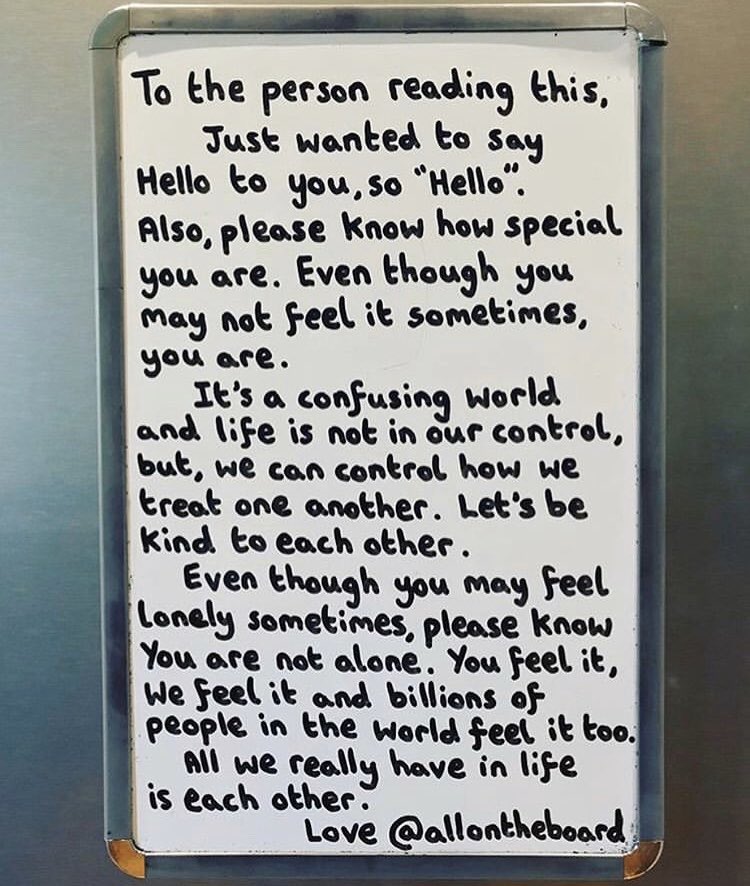 To the person reading this,
Just wanted to say
Hello to you, so "Hello".
Also, please know how special
you are. Even though you
may not feel it sometimes,
you are.
It's a confusing world
and life is not in our control,
but, we can control how we
treat one another. Let's be
kind to each other.
Even though you may feel
lonely sometimes, please know
You are not alone. You feel it,
We feel it and billions of
people in the world feel it too.
All we really have in life
is each other.
Love @allontheboard